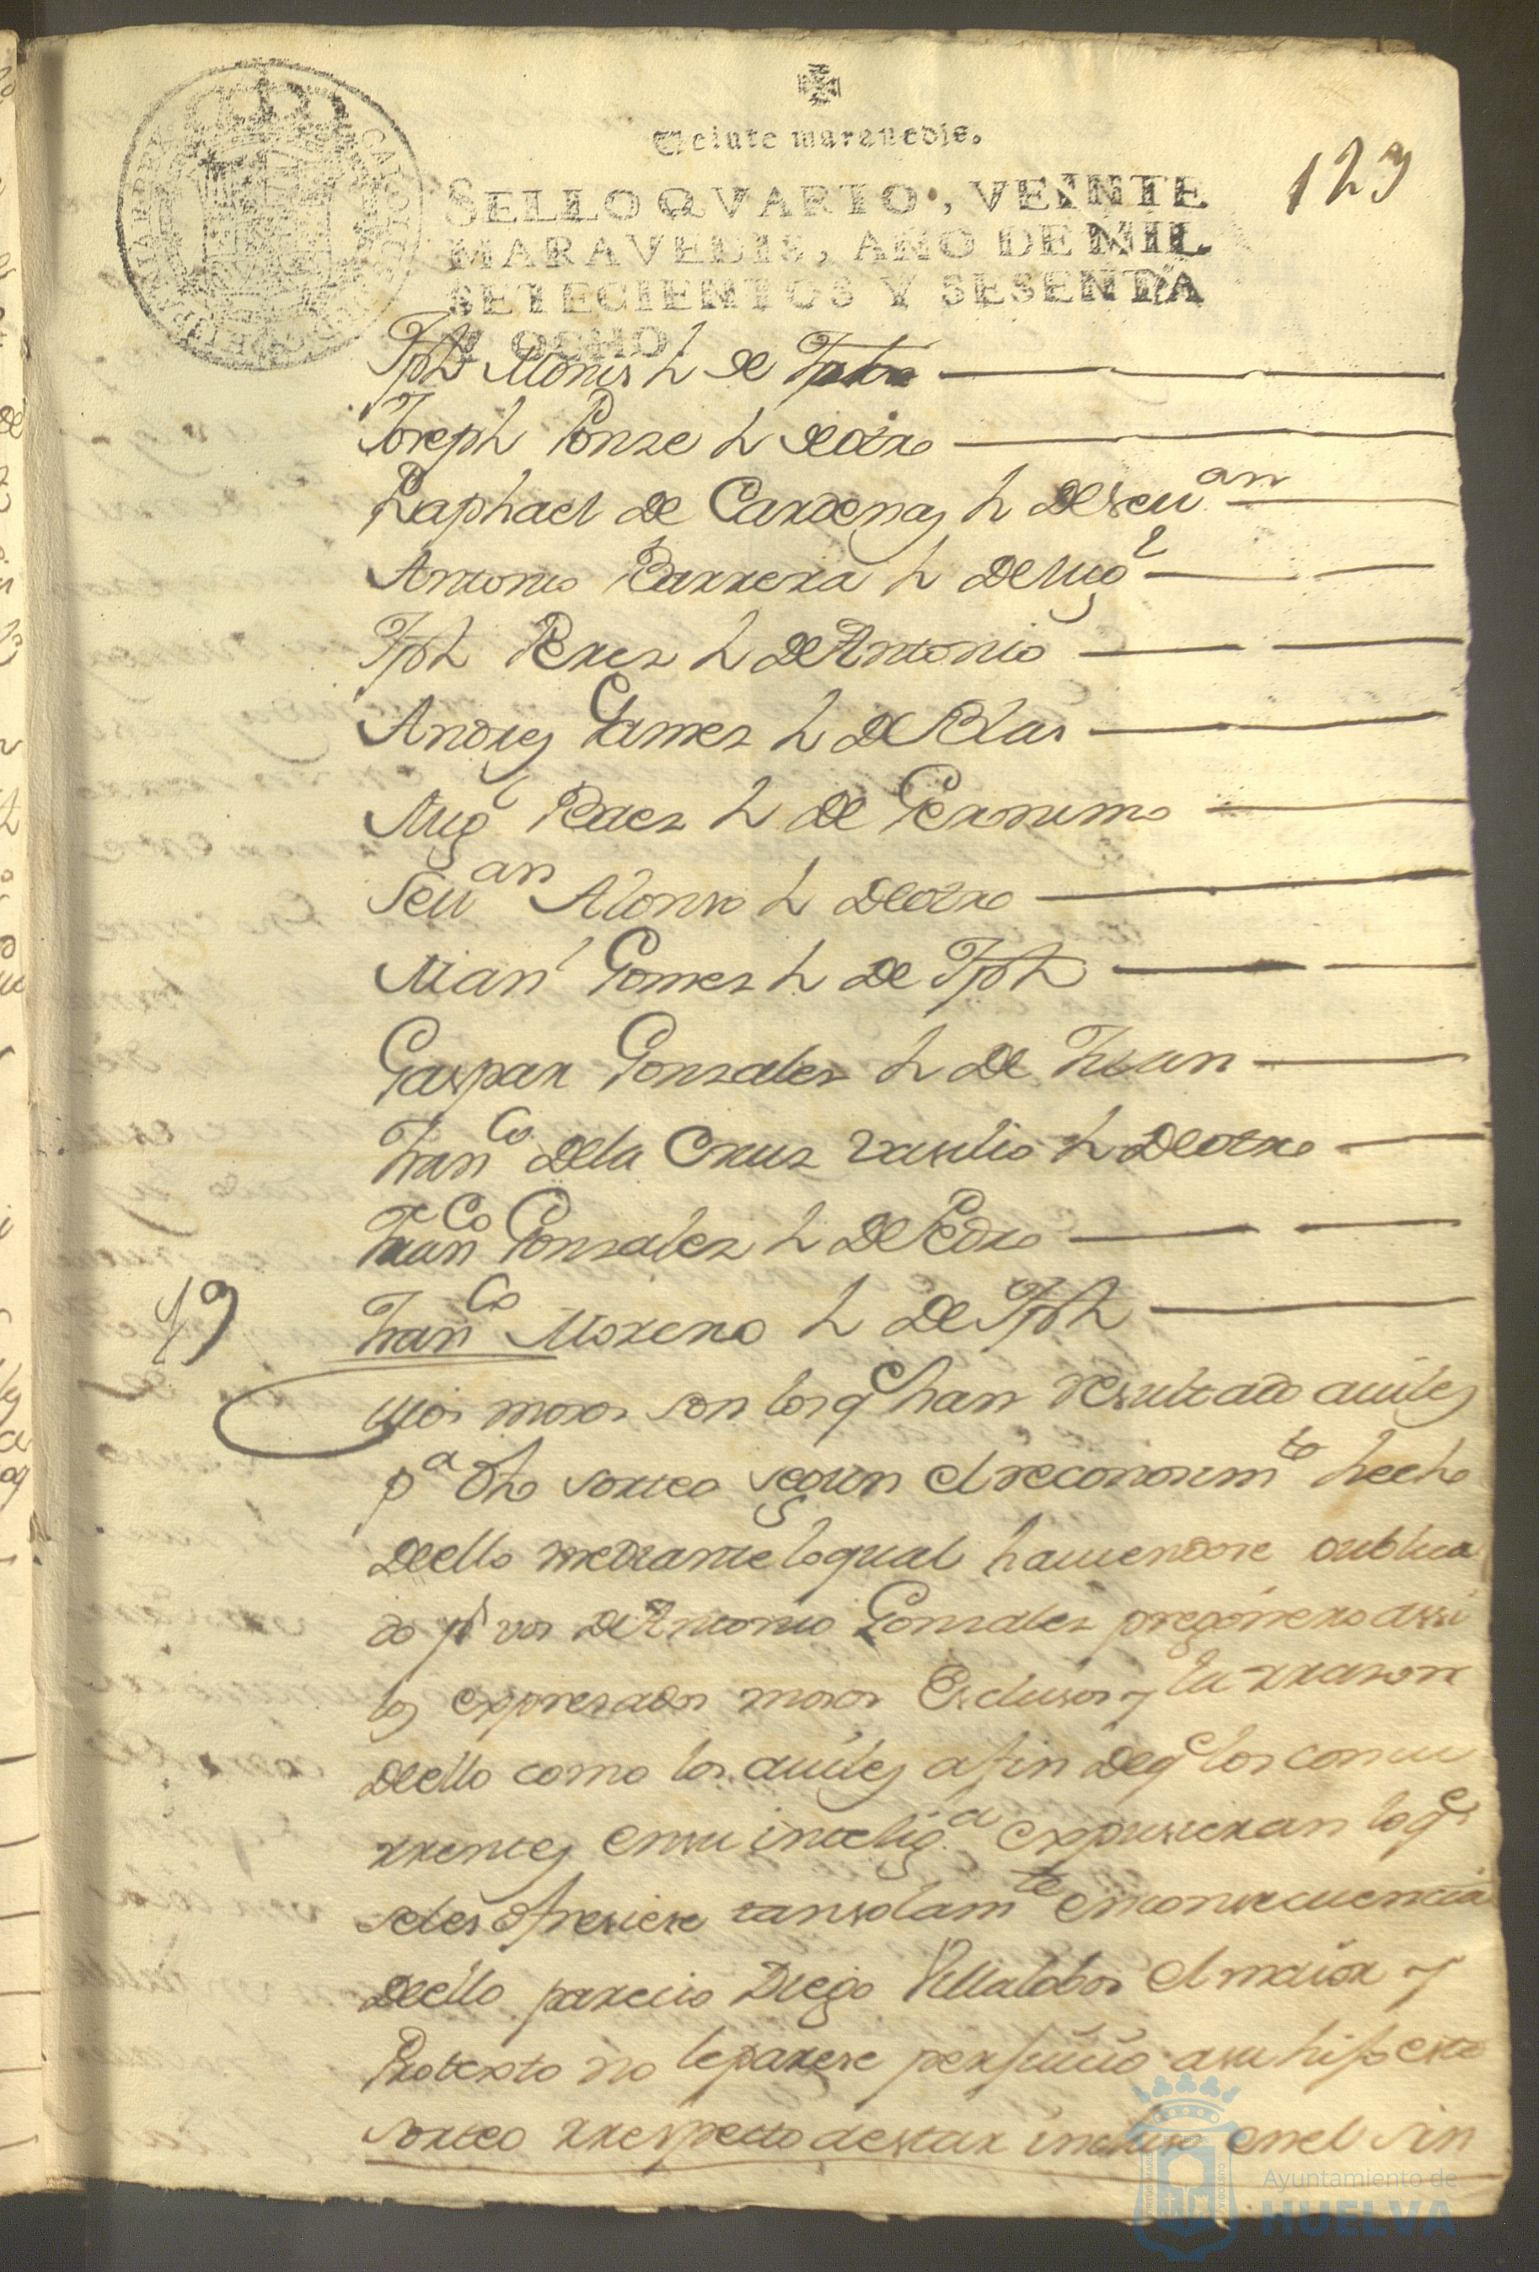 Veinte marauedis.
SELLO QVARTO, VEINTE
MARAVEDIS, AÑO DE MIL
SETECIENTOS Y SESENTA
Y OCHO.
123
Jph Moris h de
Joseph Ponze h de otro
Raphael de Cardenas h de Seuan
Antonio Barrera h de Migl
Jph Perez h de Antonio
Andres Gamez h de Blas
Migl Baez h de Geronimo
Seuan Alonso h de otro
Manl Gomez h de Jph
Gaspar Gonzalez h de Juan
Franco de la Cruz Vasilio h de otro
Franco Gonzalez h de Pedro
Franco Moreno h de Jph
cuios mozos son los qe han resultado auiles
pa dho sorteo segun el reconozimto hecho
de ello mediante lo qual hauiendose publica
do pr voz de Antonio Gonzalez pregonero assi
los expresados mozos Esclusos y la rrazon
de ello como los auiles a fin de qe los concu
rrentes en su inteliga expusieran lo qe
se les ofreziese tan solamte en consecuencia
de ello parecio Diego Villalobos el maior y
Protexto no le parese perjuicio a su hijo este
sorteo rrespecto de estar incluso en el sin
Ayuntamiento de
HUELVA